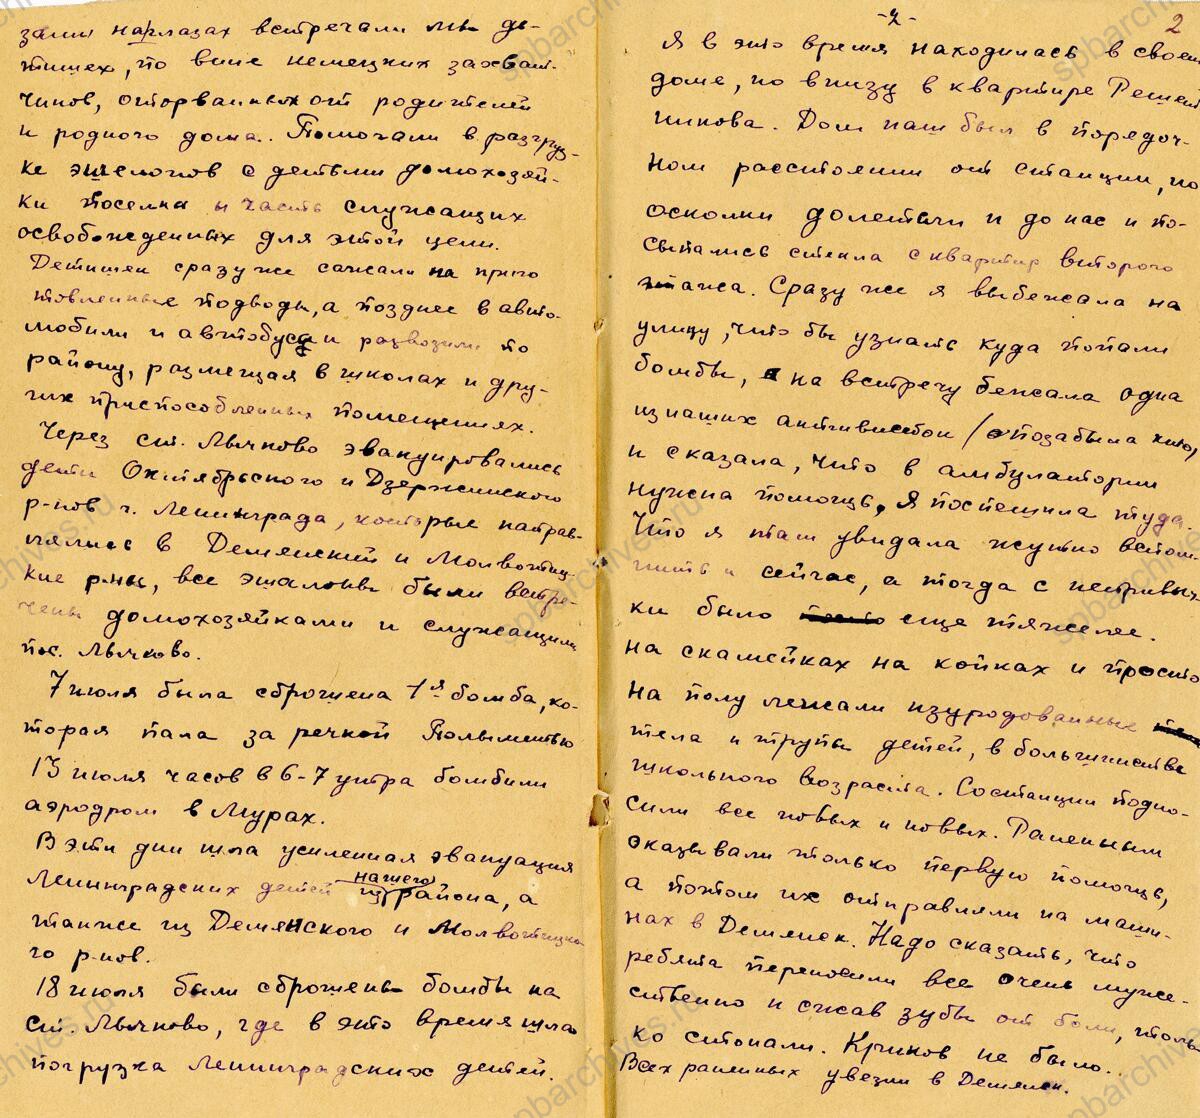 зами на глазах встречали мы де-
тишек, по вине немецких захват-
чиков, оторванных от родителей
и родного дома. Помогали в разгруз-
ке эшелонов с детьми домохозяй-
ки поселка и часть служащих
освобожденных для этой цели.
Детишек сразу же сажали на приго
товленные подводы, а позднее в авто-
мобили и автобусы и развозили по
району, размещая в школах и дру-
гих приспособленных помещениях.
Через ст. Лычково эвакуировались
дети Октябрьского и Дзержинского
р-нов г. Ленинграда, которые направ-
лялись в Демянский и Молвотиц-
кие р-ны, все эшалоны были встре-
чены домохозяйками и служащими
пос. Лычково.
7 июля была сброшена 1я бомба, ко-
торая пала за речкой Полыметью
13 июля часов в 6-7 утра бомбили
аэродром в Мурах.
В эти дни шла усиленная эвакуация
Ленинградских детей из нашего района, а
также из Демянского и Молвотицко
го р-нов.
18 июля были сброшены бомбы на
ст. Лычково, где в это время шла
погрузка Ленинградских детей.
-2-
2
Я в это время находилась в своем
доме, но внизу в квартире Решет
никова. Дом наш был в порядоч-
ном расстоянии от станции, но
осколки долетели и до нас и по-
сыпались стекла с квартир второго
этажа. Сразу же я выбежала на
улицу, что бы узнать куда попали
бомбы, на встречу бежала одна
из наших активисток (позабыла кто,
и сказала, что в амбулатории
нужна помощь, Я поспешила туда.
Что я там увидала жутко вспом-
нить и сейчас, а тогда с непривыч-
ки было еще тяжелее.
на скамейках на койках и просто
на полу лежали изуродованные
тела и трупы детей, в большинстве
школьного возраста. Со станции подно-
сили все новых и новых. Раненым
оказывали только первую помощь,
а потом их отправляли на маши-
нах в Демянск. Надо сказать, что
ребята переносили все очень муже-
ственно и сжав зубы от боли, толь
ко стонали. Криков не было.
Всех раненных увезли в Демянск.
spbarchives.ru